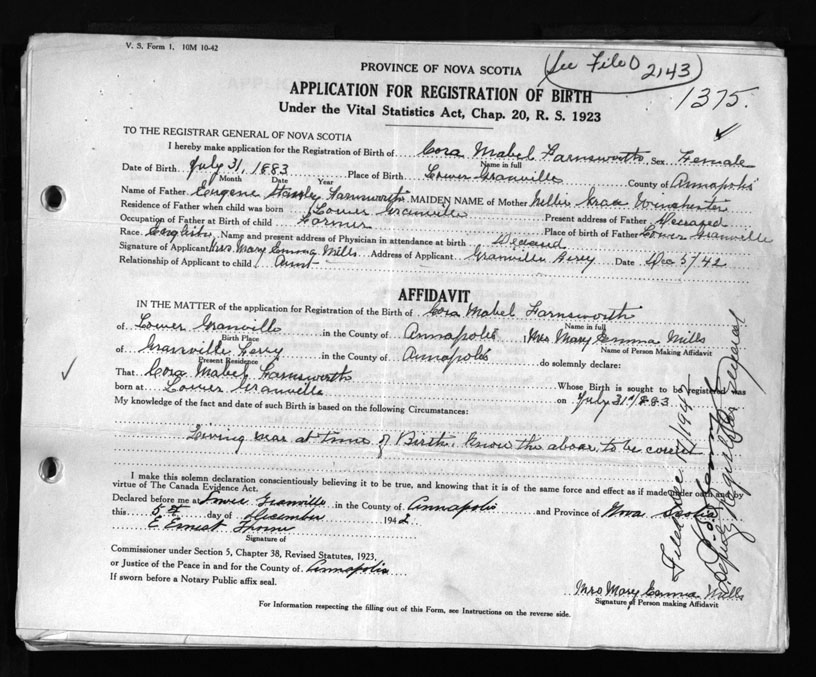 V. S. Form 1. 10M 10-42
PROVINCE OF NOVA SCOTIA
See File 2143
APPLICATION FOR REGISTRATION OF BIRTH
1375.
Under the Vital Statistics Act, Chap. 20, R. S. 1923
TO THE REGISTRAR GENERAL OF NOVA SCOTIA
I hereby make application for the Registration of Birth of Cora Mabel Farnsworth Sex Female
Name in full
Date of Birth July 31, 1883 Place of Birth Lower Granville County of Annapolis
Month Date Year
Name of Father Eugene Stanley Farnsworth MAIDEN NAME of Mother Nellie Grace
Residence of Father when child was born Lower Granville Present address of Father Deceased
Occupation of Father at Birth of child Farmer Place of birth of Father Lower Granville
Race English Name and present address of Physician in attendance at birth Deceased
Signature of Applicant Mrs. Mary Emma Mills Address of Applicant Granville Ferry Date Dec 5/42
Relationship of Applicant to child Aunt
AFFIDAVIT
IN THE MATTER of the application for Registration of the Birth of Cora Mabel Farnsworth
Name in full
of Lower Granville in the County of Annapolis, Mrs Mary Emma Mills
Birth Place Name of Person Making Affidavit
of Granville Ferry in the County of Annapolis do solemnly declare:
Present Residence
That Cora Mabel Farnsworth Whose Birth is sought to be registered was
born at Lower Granville on July 31st 1883
My knowledge of the fact and date of such Birth is based on the following Circumstances:
Living near at time of Birth. Know the above to be correct
I make this solemn declaration conscientiously believing it to be true, and knowing that it is of the same force and effect as if made under oath and by
virtue of The Canada Evidence Act.
Declared before me at Lower Granville in the County of Annapolis and Province of Nova Scotia
this 5th day of December 1942
E Ernest Thorne
Signature of
Commissioner under Section 5, Chapter 38, Revised Statutes, 1923,
or Justice of the Peace in and for the County of Annapolis
If sworn before a Notary Public affix seal.
Mrs Mary Emma Mills
Signature of Person making Affidavit
For Information respecting the filling out of this Form, see Instructions on the reverse side.
Filed Dec.
Deputy Registrar General